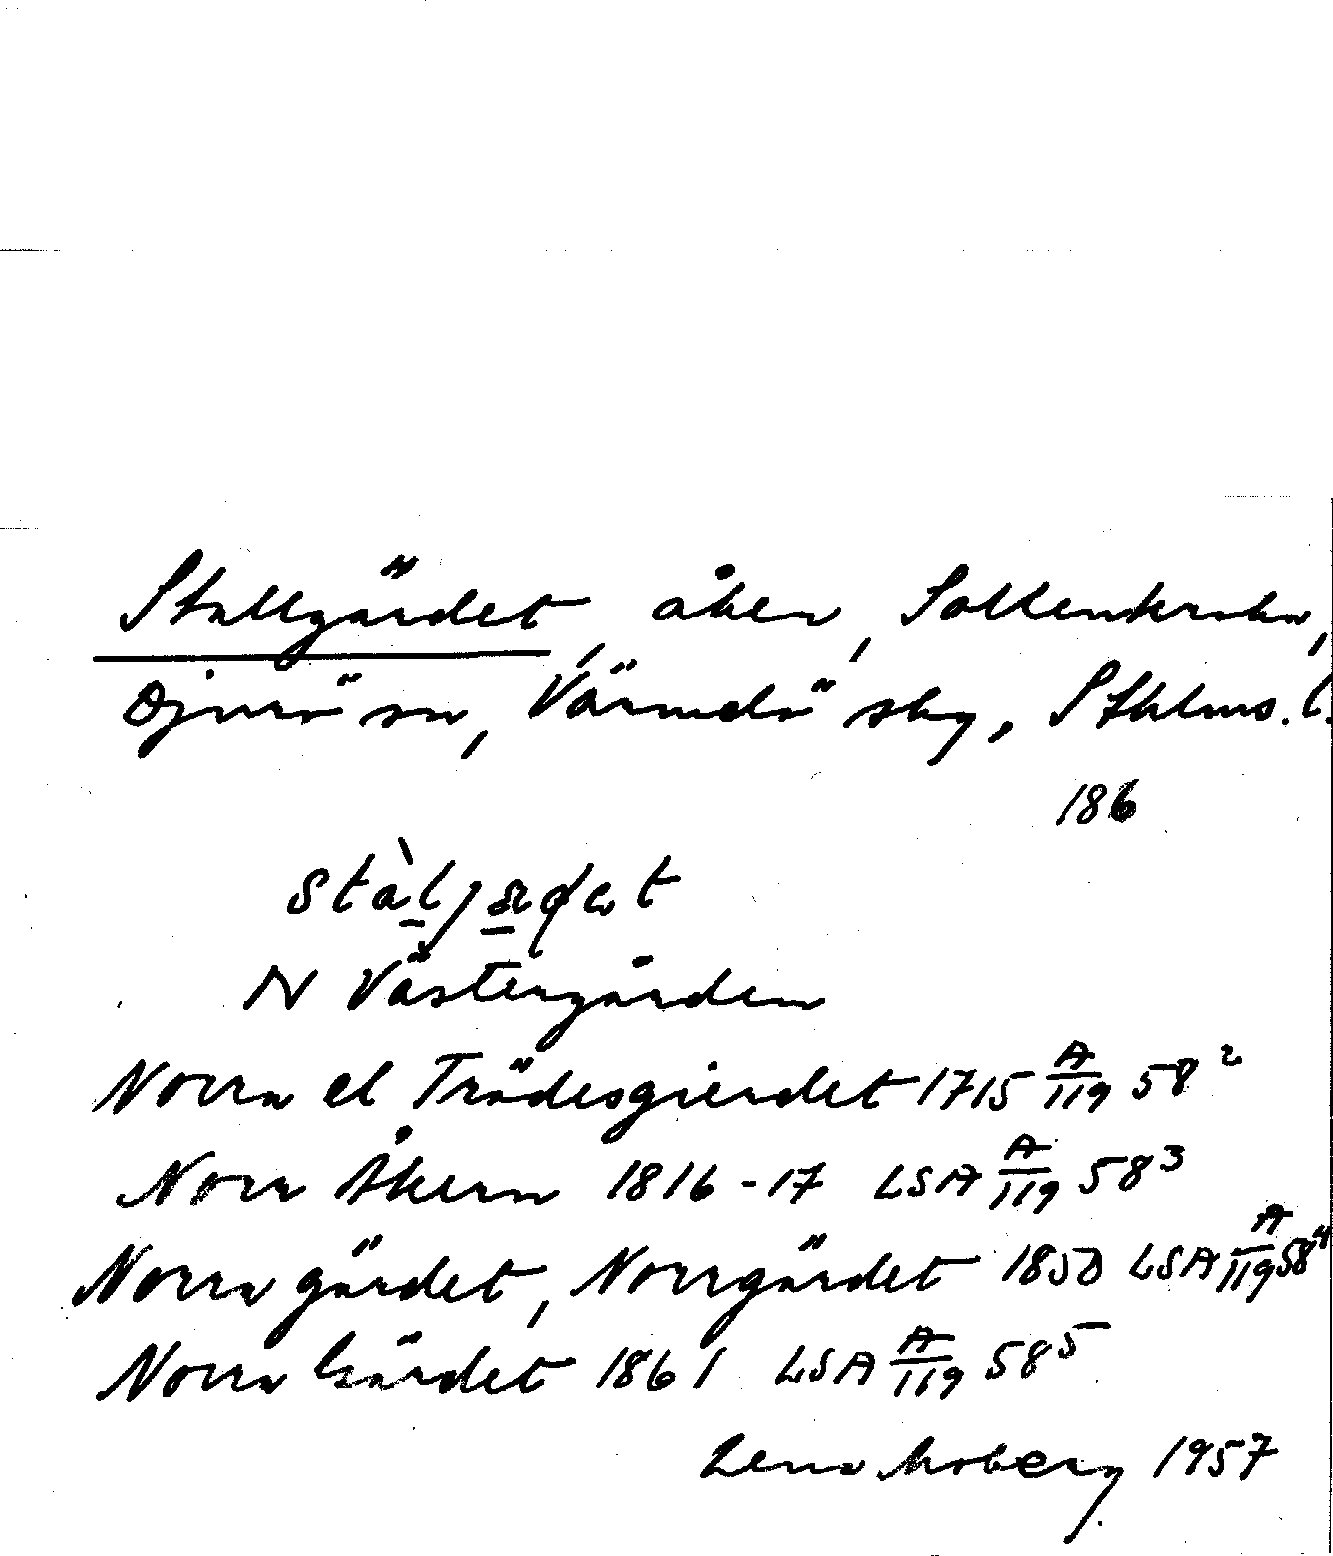 Stallgärdet, åker, Sollenkroka,
Djurö sn, Värmdö sky, Sthlms. l.
186
N Västergården
Norra el Trädesgierdet 1715 A/119 58²
Norr Åkern 1816-17 LSA A/119 58³
Norra gärdet, Norrgärdet 1850 LSA A/119 58⁴
Norra Gärdet 1861 LSA A/119 58⁵
Lena Moberg 1957